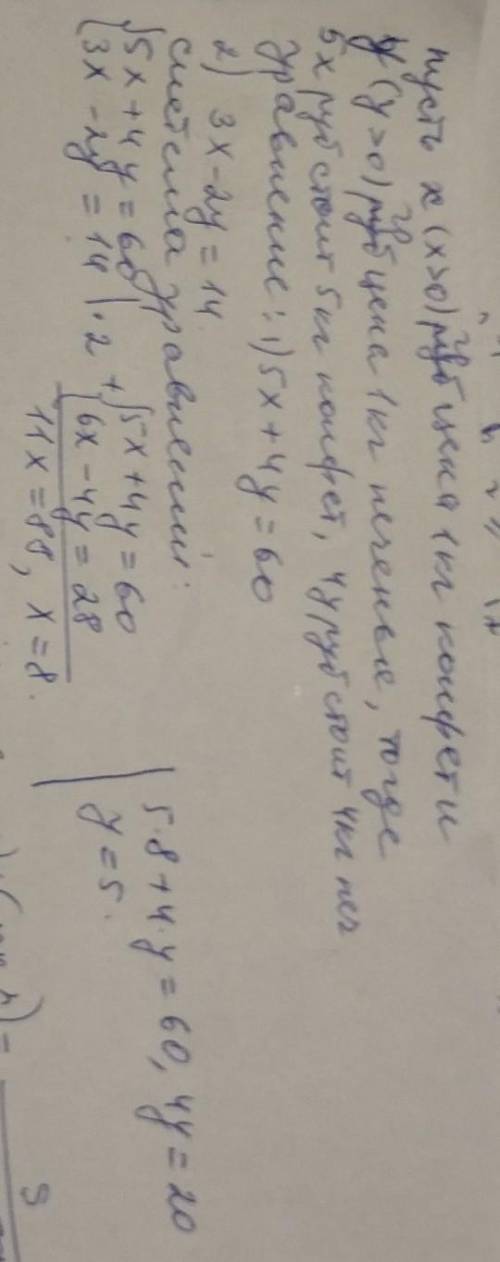 пусть x (x>0) цена 1кг конфет и
y (y>0) цена 1кг печенье, тогда
5x руб стоит 5кг конфет, 4y руб стоит 4кг печ
уравнение: 1) 5x + 4y = 60
2) 3x - 2y = 14
система уравнений:
{5x + 4y = 60
{3x - 2y = 14 | ·2
+ {5x + 4y = 60
{6x - 4y = 28
11x = 88, x = 8.
5·8 + 4·y = 60, 4y = 20
y = 5.